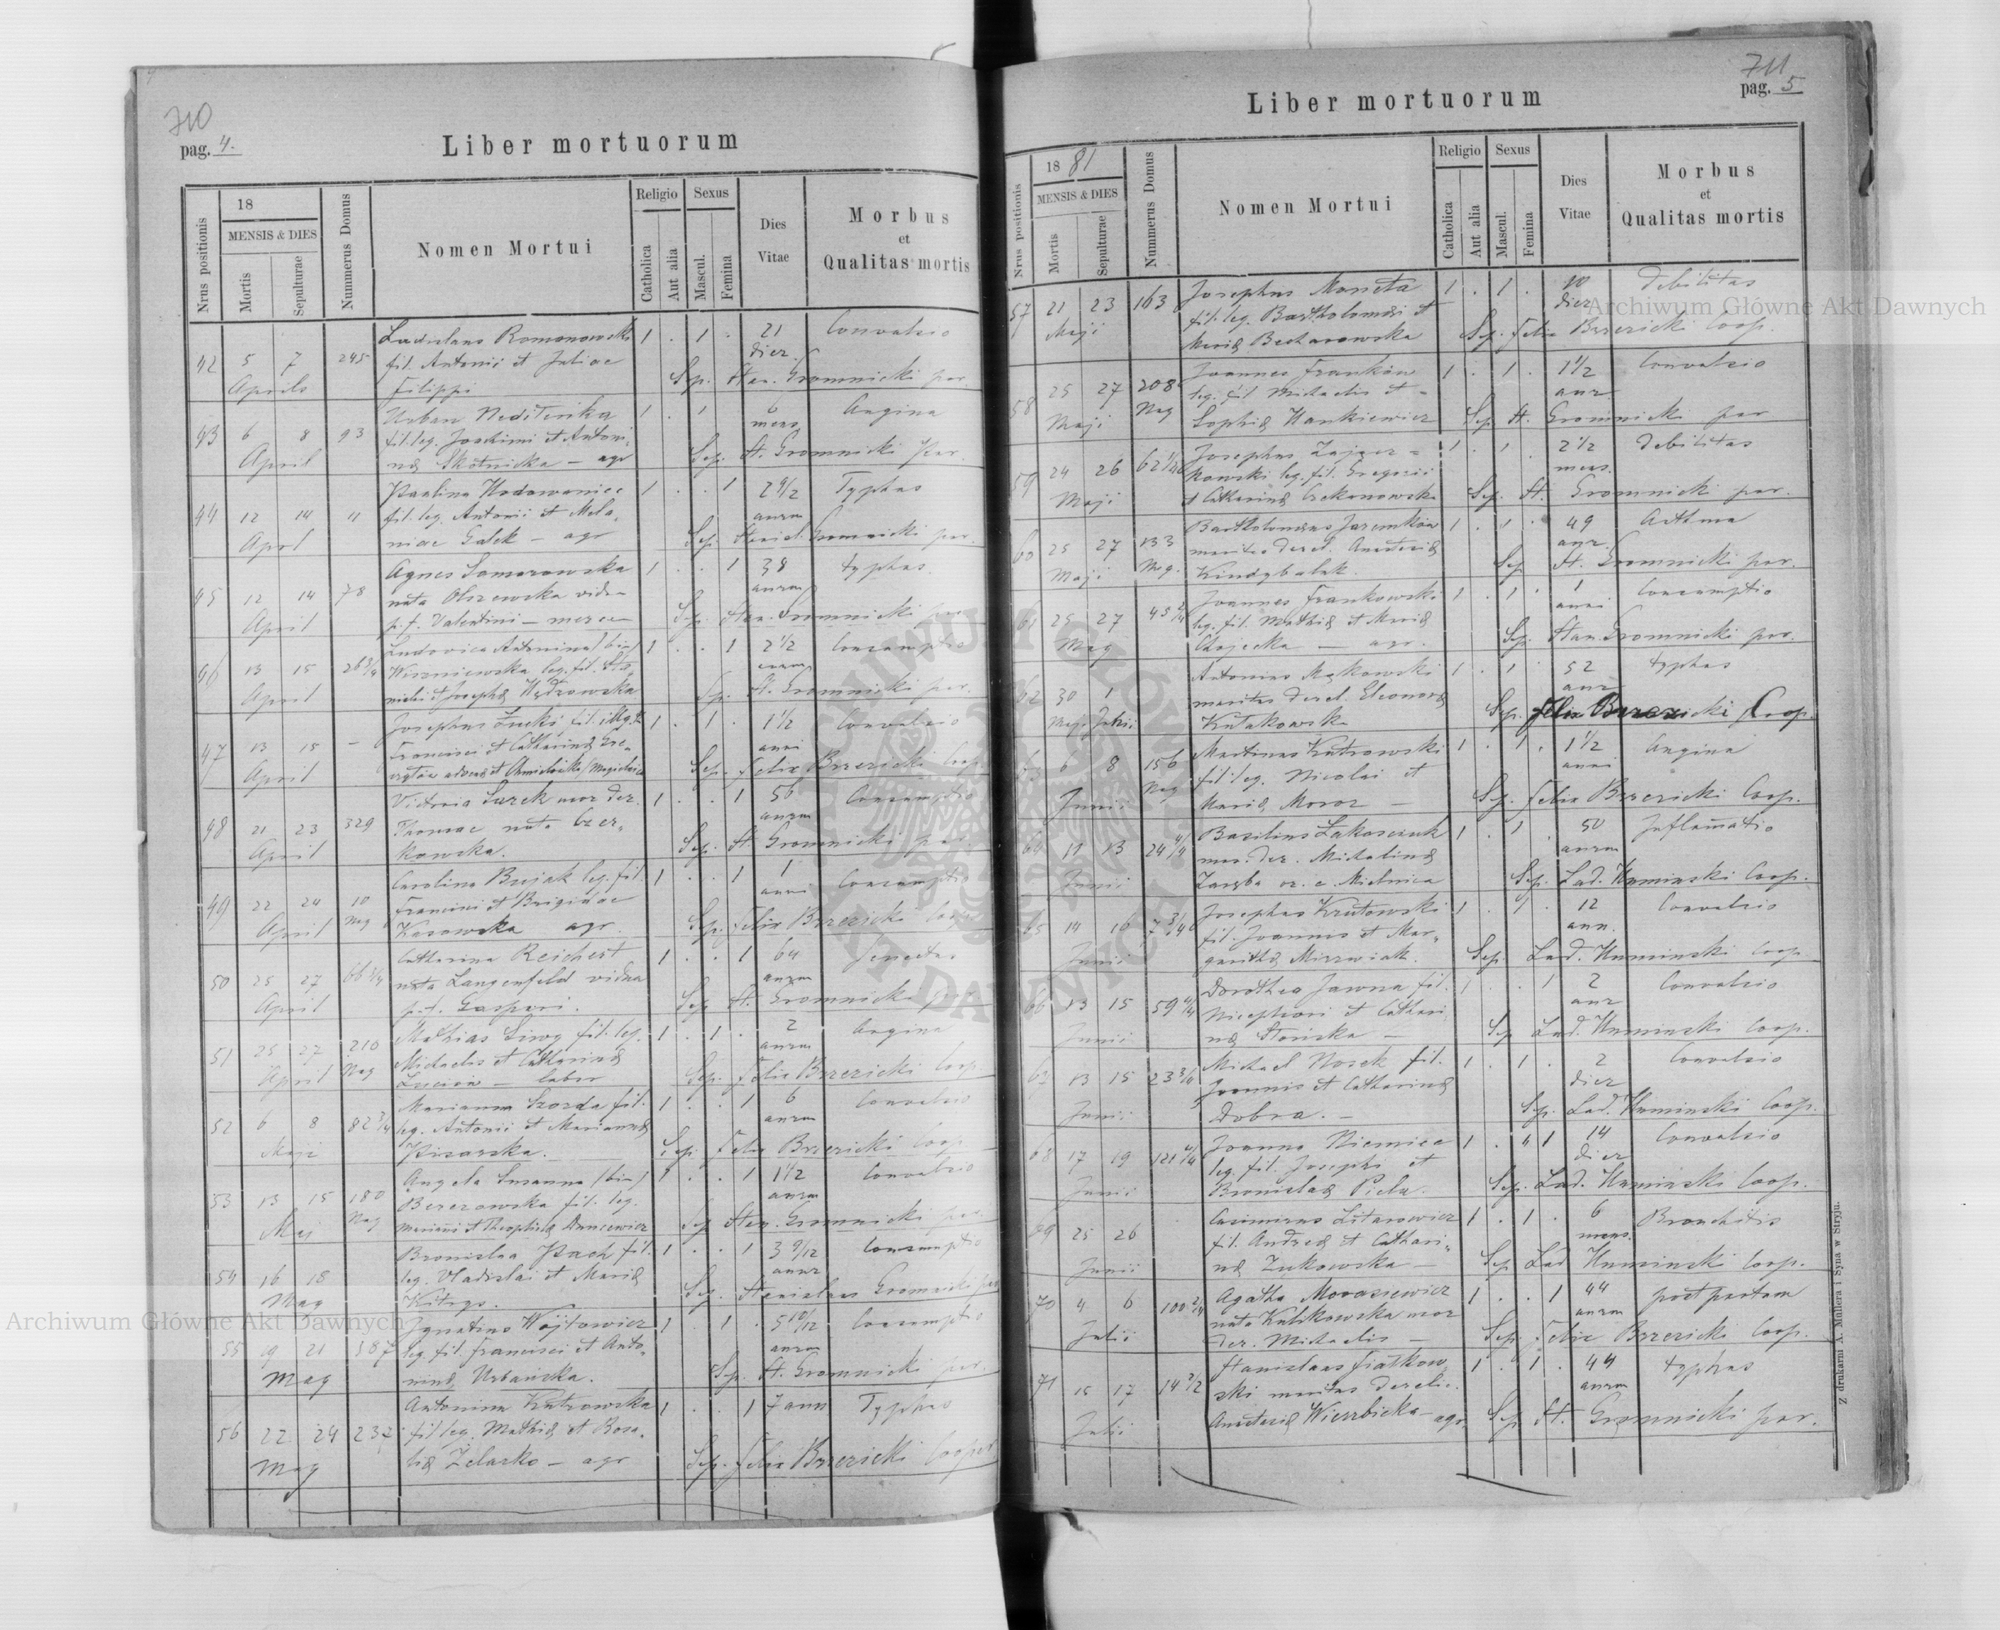 710
pag. 4.
Liber mortuorum
Nrus positionis
18
MENSIS & DIES
Mortis
Sepulturae
Nummerus Domus
Nomen Mortui
Religio
Catholica
Aut alia
Sexus
Mascul.
Femina
Dies
Vitae
Morbus
et
Qualitas mortis
42 5 7 245 Ladislaus Romanowski 1 . 1 . 21 Convulsio
Aprils fil. Antonii et Juliae dier.
Filippi Sep. Stan. Gromnicki par.
43 6 8 93 Urban 1 . 1 6 Angina
April fil. leg. Joachimi et Antoni- mens.
næ Skotnicka — agr Sep. St. Gromnicki Par.
44 12 14 11 Paulina 1 . . 1 Typhus
April fil. leg. Antonii et Mela- annor
niae Galek — agr Sep. Gromnicki par.
45 12 14 78 Agnes 1 . . 1 38 typhus.
April nata Olszewska vidu- annor
p. f. Valentini — Sep. Stan. Gromnicki par
46 13 15 26 3/4 Ludovica Antonina (bin) 1 . . 1 2 1/2 Consumptio
April Wiszniewska leg. fil. annor
Sep. St. Gromnicki par.
47 13 15 — Josephus fil. 1 . 1 . 1 1/2 Convulsio
April Francisci et Catharinæ anni
Sep. Felix Brzezicki Coop
48 21 23 329 Victoria 1 . . 1 56 Consumptio
April Thomae nata Czer- annor
kowska. Sep. St. Gromnicki par.
49 22 24 10 Carolina Brejak leg. fil. 1 . . 1 1 Consumptio
April Nag Francisci et Brigidae anni
Kosowska agr. Sep. Felix Brzezicki Coop
50 25 27 66 3/4 Catharina Reichert 1 . . 1 64 Senectus
April nata Langenfeld vidua annor
p. f. Gaspari. Sep. St. Gromnicki par
51 25 27 210 Mathias fil. leg. 1 . 1 . 2 Angina
April Nag Michaelis et Catharinæ annor
— labor Sep. Felix Brzezicki Coop
52 6 8 82 3/4 Marianna Szozda fil. 1 . . 1 6 Convulsio
Maji leg. Antonii et Mariannæ annor
Pisarska. Sep. Felix Brzezicki Coop
53 13 15 180 Angela Susanna (bin) 1 . . 1 1 1/2 Convulsio
Maj Nag Berezowska fil. leg. annor
Mariani et Theophilæ Duncewicz Sep Stan. Gromnicki par.
54 16 18 Bronislaa Pach fil. 1 . . 1 3 9/12 Consumptio
Mag leg. Vladislai et Mariæ annor
Sep. Stanislaus Gromnicki par
55 19 21 387 Ignatius Wojtowicz 1 . 1 . 5 10/12 Consumptio
Mag leg. fil. Francisci et Anto- annor
ninæ Urbańska. Sep. St. Gromnicki par.
56 22 24 232 Antonina Kutrowska 1 . . 1 7 ann Typhus
Mag fil leg. Mathiæ et Rosa-
liæ Żelasko — agr Sep. Felix Brzezicki Cooper
711
pag. 5
Liber mortuorum
Nrus positionis
18 81
MENSIS & DIES
Mortis
Sepulturae
Nummerus Domus
Nomen Mortui
Religio
Catholica
Aut alia
Sexus
Mascul.
Femina
Dies
Vitae
Morbus
et
Qualitas mortis
57 21 23 163 Josephus Moneta 1 . 1 . 10 Debilitas
Maji fil. leg. Bartholomæi et dier
Mariæ Sep. Felix Brzezicki Coop.
58 25 27 208 Joannes Franków 1 . 1 . 1 1/2 Convulsio
Maji Nag leg. fil Michaelis et anr
Sophiæ Hankiewicz Sep St. Gromnicki par
59 24 26 Josephus Zającz- 1 . 1 . 2 1/2 Debilitas
Maji kowski leg. fil. Gregorii mens.
et Catharinæ Czekanowska Sep. St. Gromnicki par.
60 25 27 133 Bartholomæus Jaremków 1 . 1 . 49 Asthma
Maji Nag. maritus derel. Anastasiæ anr.
Kindybalak. Sep St. Gromnicki par.
61 25 27 Joannes Frankowski 1 . 1 . 1 Consumptio
Mag leg. fil. Mathiæ et Mariæ anni
Chojecka — agr. Sep. Stan. Gromnicki par.
62 30 1 Antonius Mąkowski 1 . 1 52 typhus
Maji Junii maritus derel. Eleonoræ anr
Kułakowsk Sep. Felix Brzezicki Coop.
63 6 8 156 Martinus Kutrowski 1 . 1 . 1 1/2 Angina
Junii Nag fil. leg. Nicolai et anni
Mariæ Moroz — Sep. Felix Brzezicki Coop.
64 11 13 Basilius 1 . 1 . 50 Inflamatio
Junii mar. der. Michalinæ annor
Zaręba Sep. Lad. Huminski Coop.
65 14 16 7 3/4 Josephus Krutowski 1 . 1 . 12 Convulsio
Junii fil. Joannis et Mar- ann.
garithæ Sep. Lad. Huminski Coop.
66 13 15 59 Dorothea Jawna fil. 1 . . 1 2 Convulsio
Junii Nicephori et Cathari- anr
næ Sep Lad. Huminski Coop.
67 13 15 23 3/4 Michael Nosek fil. 1 . 1 . 2 Convulsio
Junii Joannis et Catharinæ dier
Dobra. — Sep. Lad. Huminski Coop.
68 17 19 121 Joanna Niemiec 1 . 1 14 Convulsio
Junii leg. fil. Josephi et dier
Bronislaæ Piela. Sep. Lad. Huminski Coop.
69 25 26 Casimirus 1 . 1 . 6 Bronchitis
Junii fil. Andreæ et Cathari- mens.
næ Żukowska — Sep Lad Huminski Coop.
70 4 6 100 2/4 Agatha Morasiewicz 1 . . 1 44 post partum
Julii nata Kulikowska uxor annor
der. Michaelis — Sep. Felix Brzezicki Coop.
71 15 17 14 Stanislaus Fiałkow- 1 . 1 . 44 typhus
Julii ski maritus derelic. annor
Anastasiæ Wierzbicka — agr. Sep. St. Gromnicki par.
Z drukarni A. Müllera i Syna w Stryju.
Archiwum Główne Akt Dawnych
Archiwum Główne Akt Dawnych
ARCHIWUM GŁÓWNE AKT DAWNYCH